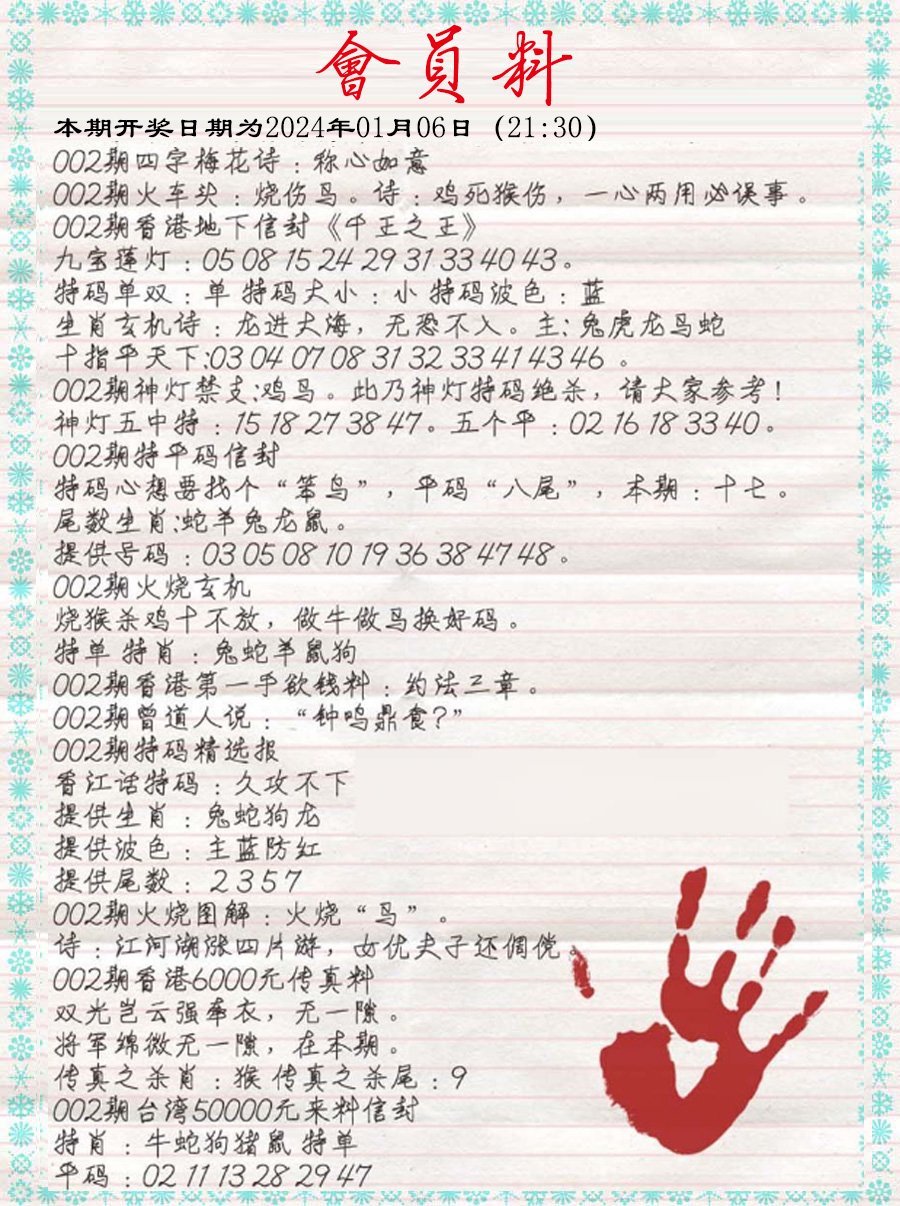 會員料
本期开奖日期为2024年01月06日（21:30）
002期四字梅花诗：称心如意
002期火车头：烧伤鸟。诗：鸡死猴伤，一心两用必误事。
002期香港地下信封《牛王之王》
九宝莲灯：05 08 15 24 29 31 33 40 43。
特码单双：单 特码大小：小 特码波色：蓝
生肖玄机诗：龙进大海，无恐不入。主:兔虎龙马蛇
十指平天下:03 04 07 08 31 32 33 41 43 46 。
002期神灯禁支:鸡鸟。此乃神灯特码绝杀，请大家参考！
神灯五中特：15 18 27 38 47。五个平：02 16 18 33 40。
002期特平码信封
特码心想要找个“笨鸟”，平码“八尾”，本期：十七。
尾数生肖:蛇羊兔龙鼠。
提供号码：03 05 08 10 19 36 38 47 48。
002期火烧玄机
烧猴杀鸡十不放，做牛做马换好码。
特单 特肖：兔蛇羊鼠狗
002期香港第一手欲钱料：约法三章。
002期曾道人说：“钟鸣鼎食？”
002期特码精选报
香江话特码：久攻不下
提供生肖：兔蛇狗龙
提供波色：主蓝防红
提供尾数：2 3 5 7
002期火烧图解：火烧“鸟”。
诗：江河湖涨四片游，女优夫子还倜傥。
002期香港6000元传真料
双光岂云强牵衣，无一隙。
将军绵微无一隙，在本期。
传真之杀肖：猴 传真之杀尾：9
002期台湾50000元来料信封
特肖：牛蛇狗猪鼠 特单
平码：02 11 13 28 29 47